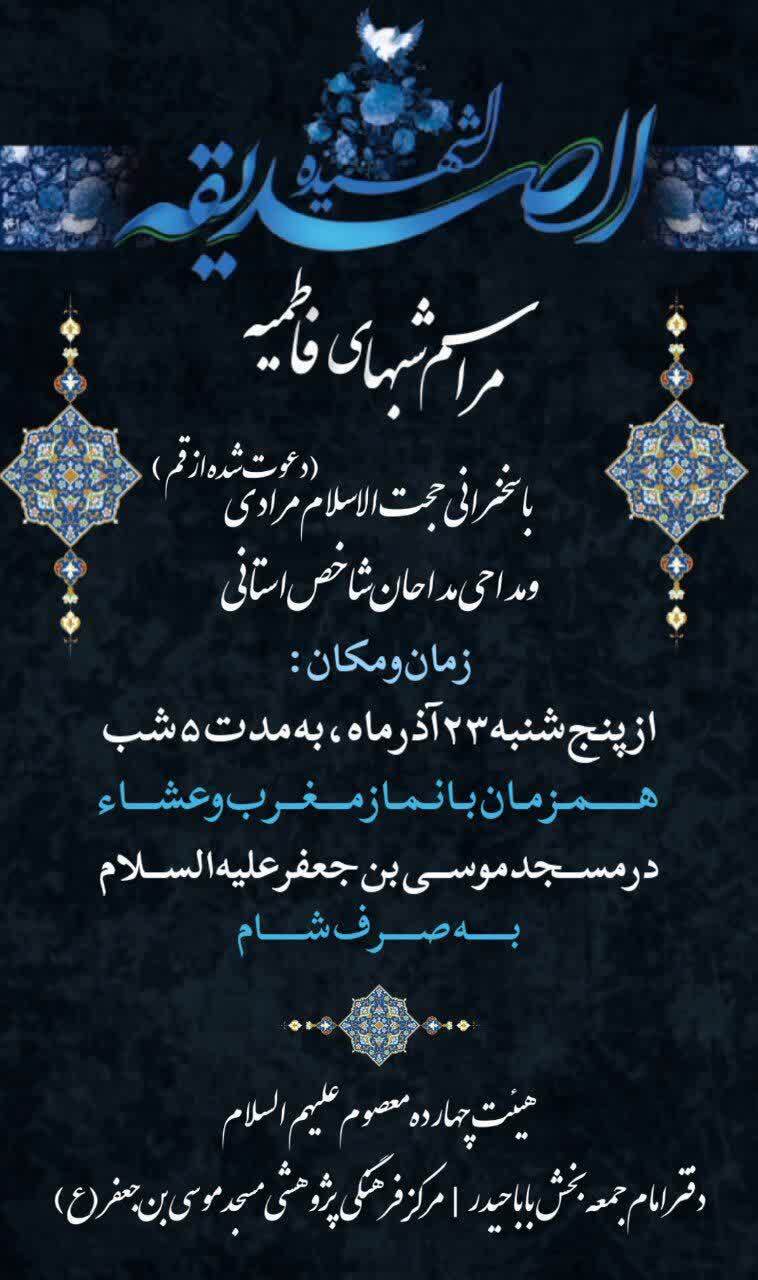 الصدیقه الشهیده
مراسم شبهای فاطمیه
با سخنرانی حجت الاسلام مرادی (دعوت شده از قم)
و مداحی مداحان شاخص استانی
زمان و مکان :
از پنج شنبه ۲۳ آذر ماه ، به مدت ۵ شب
همزمان با نماز مغرب و عشاء
در مسجد موسی بن جعفر علیه السلام
به صرف شام
هیئت چهارده معصوم علیهم السلام
دفتر امام جمعه بخش باباحیدر | مرکز فرهنگی پژوهشی مسجد موسی بن جعفر (ع)